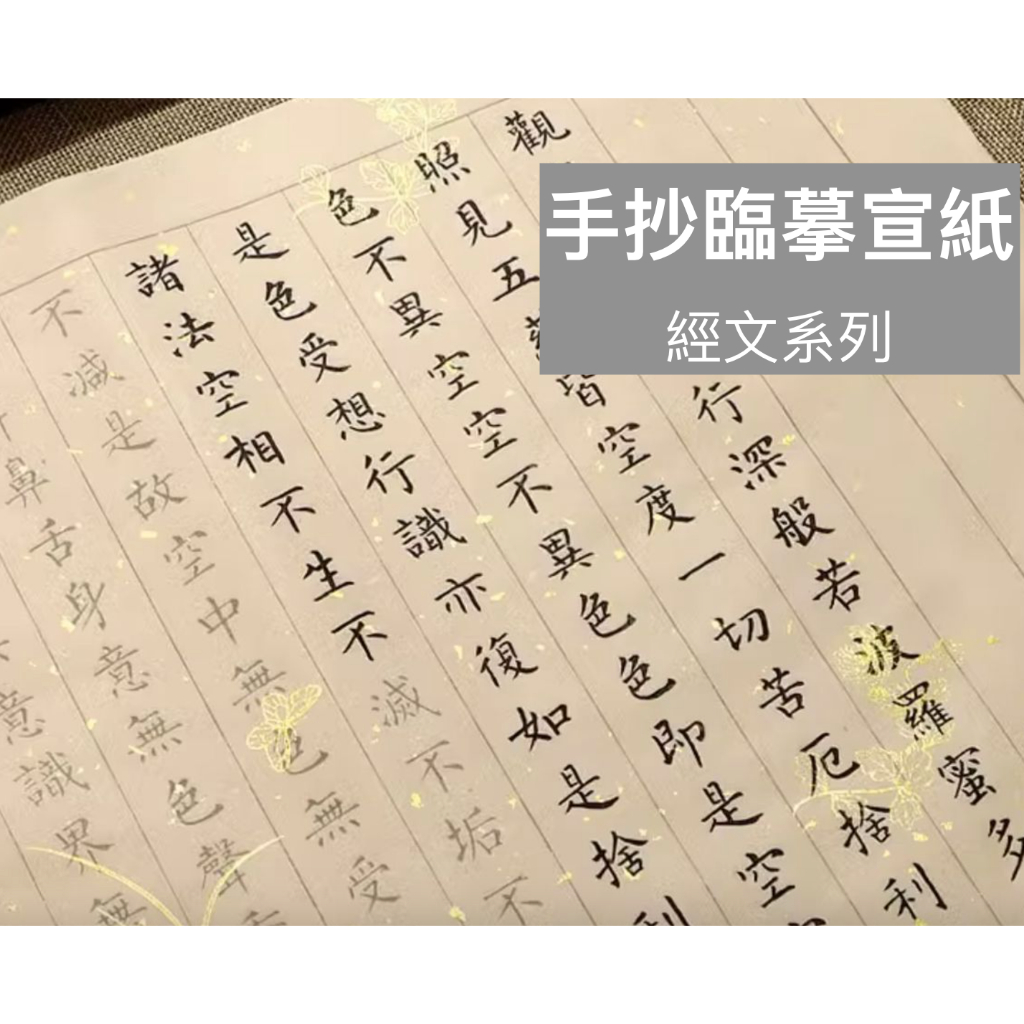 手抄臨摹宣紙
經文系列
觀行深般若波羅蜜多
照見五皆空度一切苦厄捨利
色不異空空不異色色即是空
是色受想行識亦復如是捨利
諸法空相不生不滅不垢不
不減是故空中無色無受
鼻舌身意無色聲
意識界無